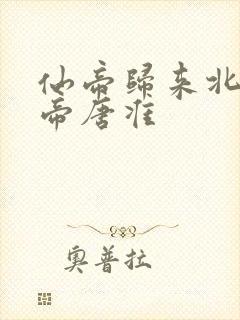 仙帝歸来北
帝唐淮
奥普拉